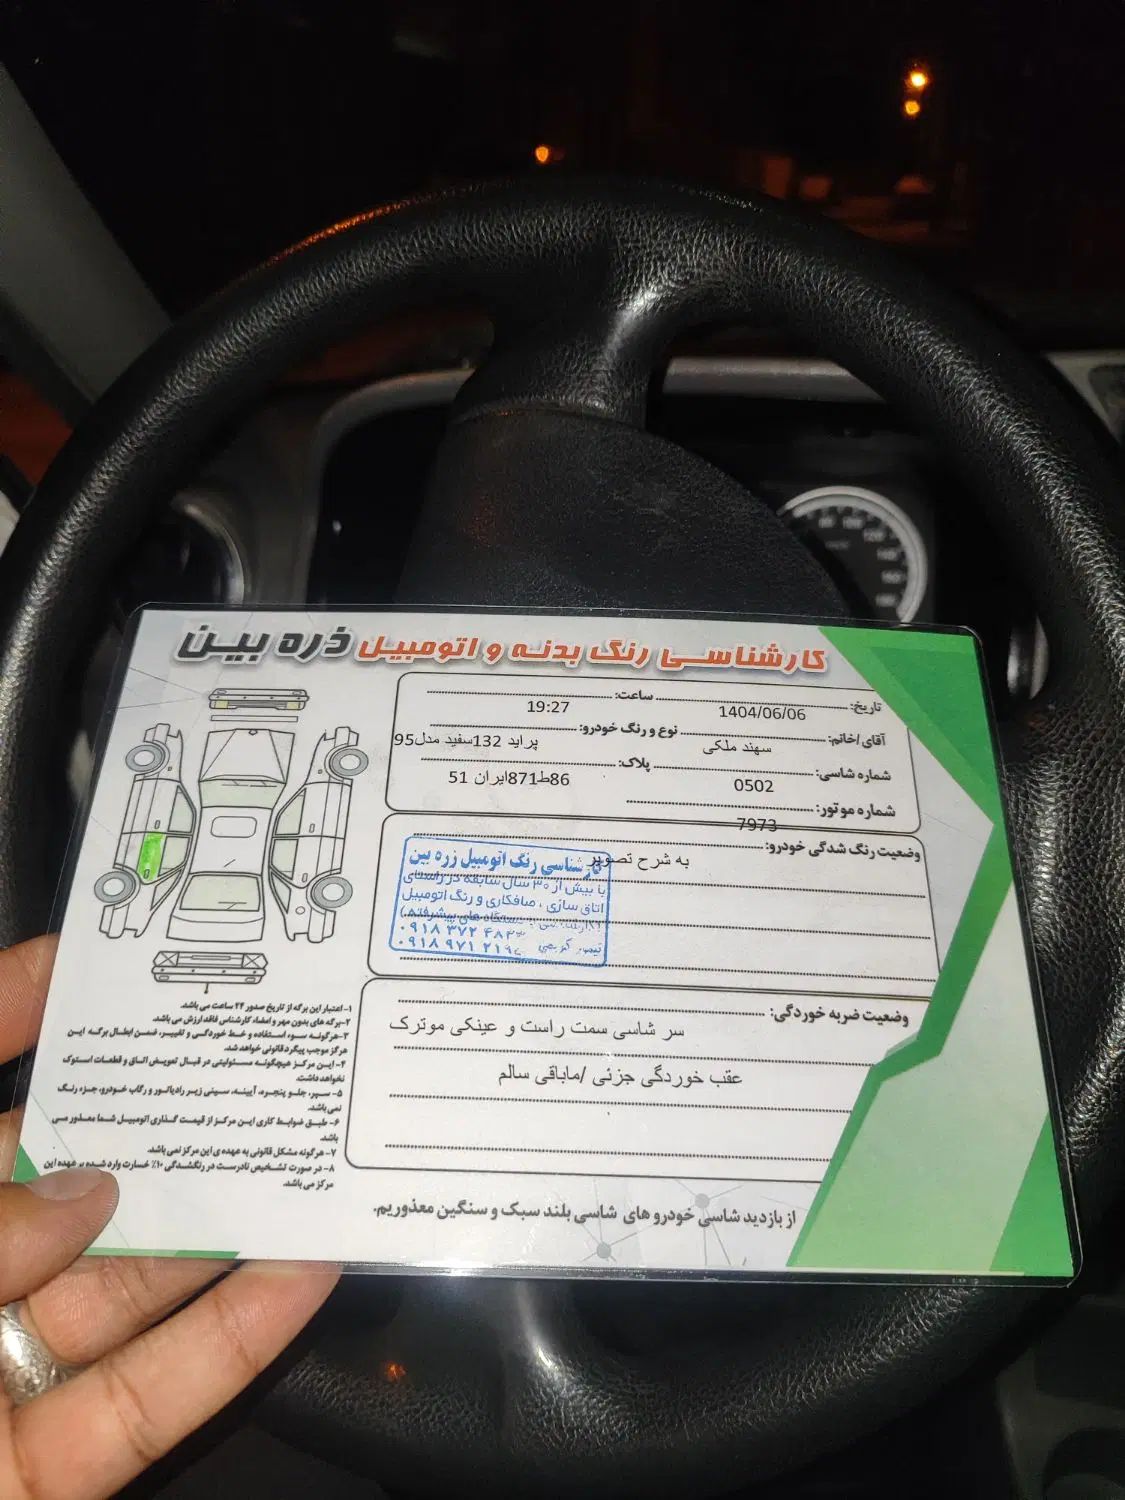 کارشناسی رنگ بدنه و اتومبیل ذره بین
تاریخ: 1404/06/06 ساعت: 19:27
آقای/خانم: سهند ملکی نوع و رنگ خودرو: پراید 132سفید مدل95
شماره شاسی: 0502 پلاک: 86ط871ایران 51
شماره موتور: 7973
وضعیت رنگ شدگی خودرو:
به شرح تصویر
کارشناسی رنگ اتومبیل زره بین
با بیش از ۳۰ سال سابقه در راستای
اتاق سازی ، صافکاری و رنگ اتومبیل
دستگاه های پیشرفته)
۰۹۱۸ ۳۷۲
۰۹۱۸ ۹۷۱
وضعیت ضربه خوردگی:
سر شاسی سمت راست و عینکی موترک
عقب خوردگی جزئی /ماباقی سالم
۱- اعتبار این برگه از تاریخ صدور ۲۴ ساعت می باشد.
۲-برگه های بدون مهر و امضاء کارشناسی فاقد ارزش می باشد.
۳-هرگونه سوء استفاده و خط خوردگی و تغییر، ضمن ابطال برگه این
مرکز موجب پیگرد قانونی خواهد شد.
۴- این مرکز هیچگونه مسئولیتی در قبال تعویض اتاق و قطعات استوک
نخواهد داشت.
۵- سپر، جلو پنجره، آیینه، سینی زیر رادیاتور و رکاب خودرو، جزء رنگ
نمی باشد.
۶- طبق ضوابط کاری این مرکز از قیمت گذاری اتومبیل شما معذور می
باشد.
۷- هرگونه مشکل قانونی به عهده ی این مرکز نمی باشد.
۸- در صورت تشخیص نادرست در رنگشدگی ۱۰٪ خسارت وارد شده بر عهده این
مرکز می باشد.
از بازدید شاسی خودرو های شاسی بلند سبک و سنگین معذوریم.